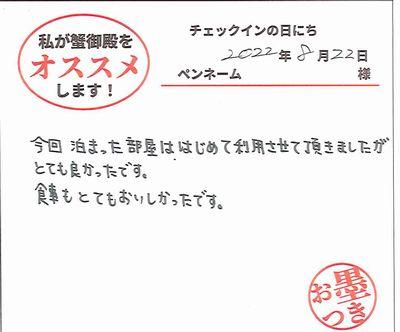 私が蟹御殿を
オススメ
します！
チェックインの日にち
2022年8月22日
ペンネーム 様
今回 泊まった部屋ははじめて利用させて頂きましたが
とても良かったです。
食事もとてもおいしかったです。
お墨つき